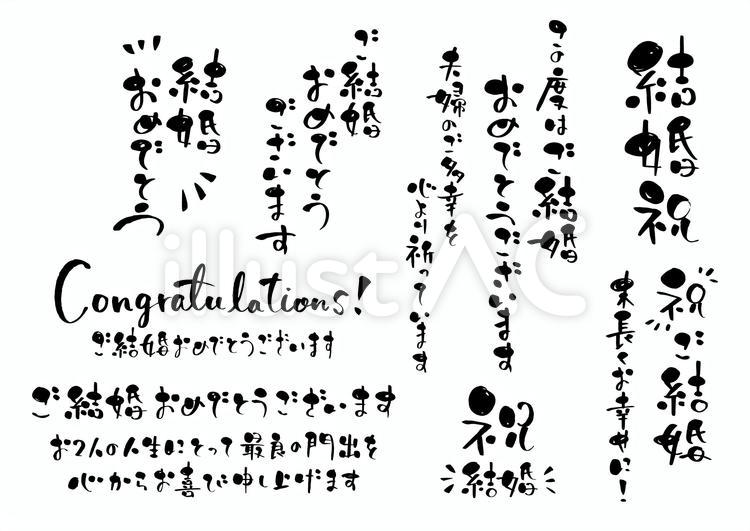 結婚祝
祝ご結婚
末長くお幸せに!
この度はご結婚
おめでとうございます
夫婦のご多幸を
心より祈っています
祝
結婚
ご結婚
おめでとう
ございます
結婚
おめでとう
Congratulations!
ご結婚おめでとうございます
ご結婚おめでとうございます
お2人の人生にとって最良の門出を
心からお喜び申し上げます
illustAC